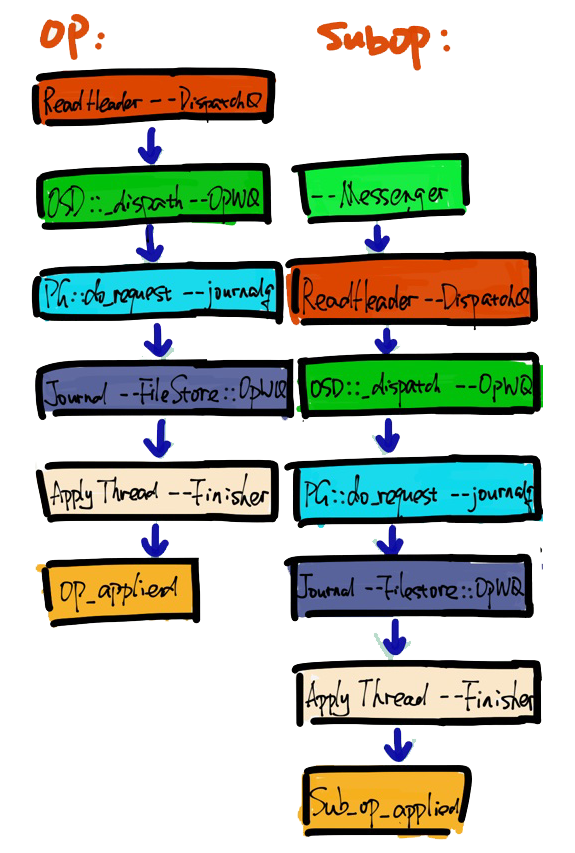 OP:
ReadHeader --DispatchQ
OSD::_dispath --OpWQ
PG::do_request --journalq
Journal --FileStore::OpWQ
Apply Thread --Finisher
Op_applied
SubOp:
--Messenger
ReadHeader --DispatchQ
OSD::_dispatch --OpWQ
PG::do_request --journalq
Journal --Filestore::OpWQ
Apply Thread --Finisher
Sub_op_applied